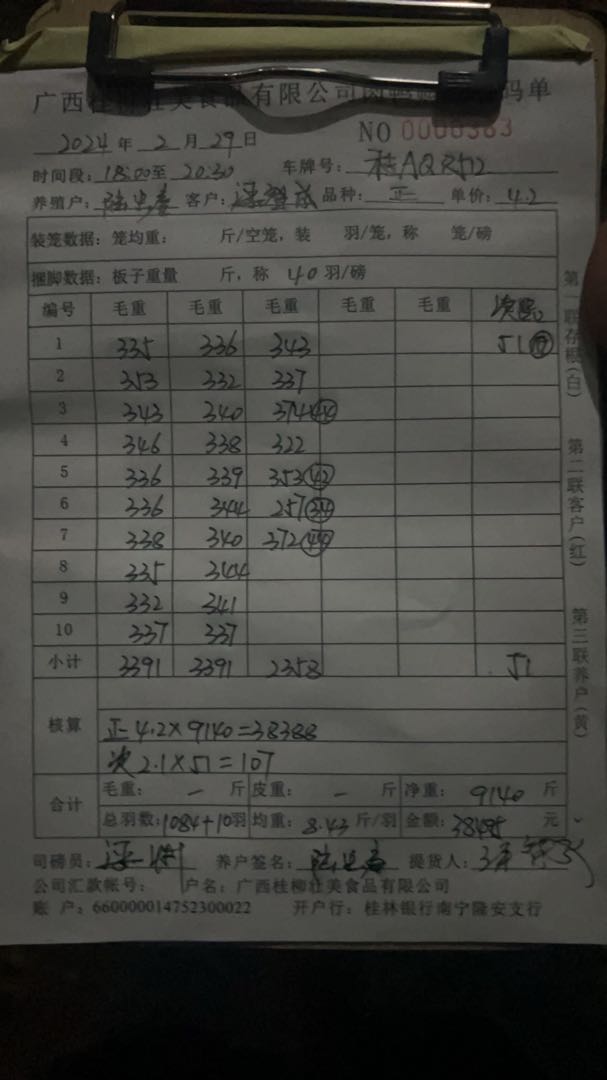 广西桂柳壮美食品有限公司肉鸭 码单
2024 年 2 月 29 日 NO 0000383
时间段: 18:00至 20:30 车牌号: 桂AQR512
养殖户: 客户: 品种: 正 单价: 4.2
装笼数据: 笼均重: 斤/空笼, 装 羽/笼, 称 笼/磅
捆脚数据: 板子重量 斤, 称 40 羽/磅
编号 毛重 毛重 毛重 毛重 毛重 次
1 335 336 343 51
2 353 332 337
3 343 340 374 44
4 346 338 322
5 336 339 353 42
6 336 344 257 34
7 338 340 372 44
8 335 344
9 332 341
10 337 337
小计 3391 3391 2358 51
核算
正 4.2×9140=38388
次 2.1×51=107
合计
毛重: — 斤 皮重: — 斤 净重: 9140 斤
总羽数: 1084+10羽 均重: 8.43 斤/羽 金额: 38495 元
司磅员: 养户签名: 提货人:
公司汇款帐号: 户名: 广西桂柳壮美食品有限公司
账 户: 660000014752300022 开户行: 桂林银行南宁隆安支行
第一联存根(白)
第二联客户(红)
第三联养户(黄)